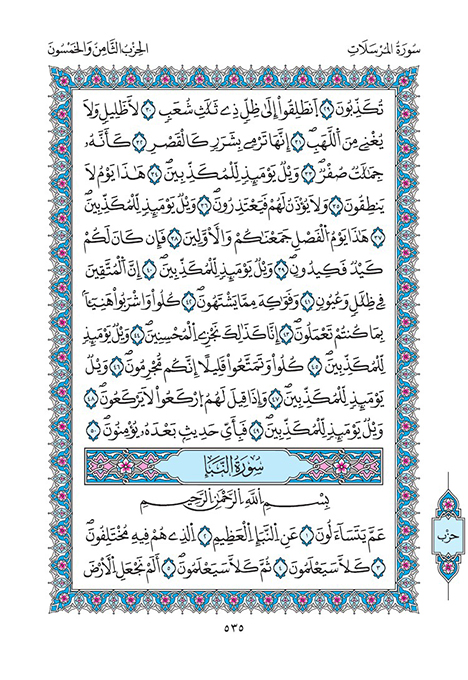 سُورَةُ المُرْسَلَاتِ
الحِزْبُ الثَّامِنُ وَالْخَمْسُونَ
تُكَذِّبُونَ ٢٩ اَنطَلِقُوٓاْ إِلَىٰ ظِلّٖ ذِے ثَلَٰثِ شُعَبٖ ٣٠ لَّا ظَلِيلٖ وَلَا
يُغْنِے مِنَ اَللَّهَبِ ٣١ إِنَّهَا تَرْمِے بِشَرَرٖ كَالْقَصْرِ ٣٢ كَأَنَّهُۥ
جِمَٰلَٰتٞ صُفْرٞ ٣٣ وَيْلٞ يَوْمَئِذٖ لِّلْمُكَذِّبِينَ ٣٤ هَٰذَا يَوْمُ لَا
يَنطِقُونَ ٣٥ وَلَا يُؤْذَنُ لَهُمْ فَيَعْتَذِرُونَ ٣٦ وَيْلٞ يَوْمَئِذٖ لِّلْمُكَذِّبِينَ
٣٧ هَٰذَا يَوْمُ اُلْفَصْلِ جَمَعْنَٰكُمْ وَالْأَوَّلِينَ ٣٨ فَإِن كَانَ لَكُمْ
كَيْدٞ فَكِيدُونِ ٣٩ وَيْلٞ يَوْمَئِذٖ لِّلْمُكَذِّبِينَ ٤٠ إِنَّ اَلْمُتَّقِينَ
فِے ظِلَٰلٖ وَعُيُونٖ ٤١ وَفَوَٰكِهَ مِمَّا يَشْتَهُونَ ٤٢ كُلُواْ وَاشْرَبُواْ هَنِيٓـَٔاۢ
بِمَا كُنتُمْ تَعْمَلُونَ ٤٣ إِنَّا كَذَٰلِكَ نَجْزِے اِلْمُحْسِنِينَ ٤٤ وَيْلٞ يَوْمَئِذٖ
لِّلْمُكَذِّبِينَ ٤٥ كُلُواْ وَتَمَتَّعُواْ قَلِيلًا اِنَّكُم مُّجْرِمُونَ ٤٦ وَيْلٞ
يَوْمَئِذٖ لِّلْمُكَذِّبِينَ ٤٧ وَإِذَا قِيلَ لَهُمُ اُرْكَعُواْ لَا يَرْكَعُونَ ٤٨
وَيْلٞ يَوْمَئِذٖ لِّلْمُكَذِّبِينَ ٤٩ فَبِأَيِّ حَدِيثِۢ بَعْدَهُۥ يُؤْمِنُونَ ٥٠
سُورَةُ النَّبَإِ
بِسْمِ اِللَّهِ اِلرَّحْمَٰنِ اِلرَّحِيمِ
عَمَّ يَتَسَآءَلُونَ ١ عَنِ اِلنَّبَإِ اِلْعَظِيمِ ٢ اِلذِے هُمْ فِيهِ مُخْتَلِفُونَ
٣ كَلَّا سَيَعْلَمُونَ ٤ ثُمَّ كَلَّا سَيَعْلَمُونَ ٥ أَلَمْ نَجْعَلِ اِلْأَرْضَ
حزب
٥٣٥